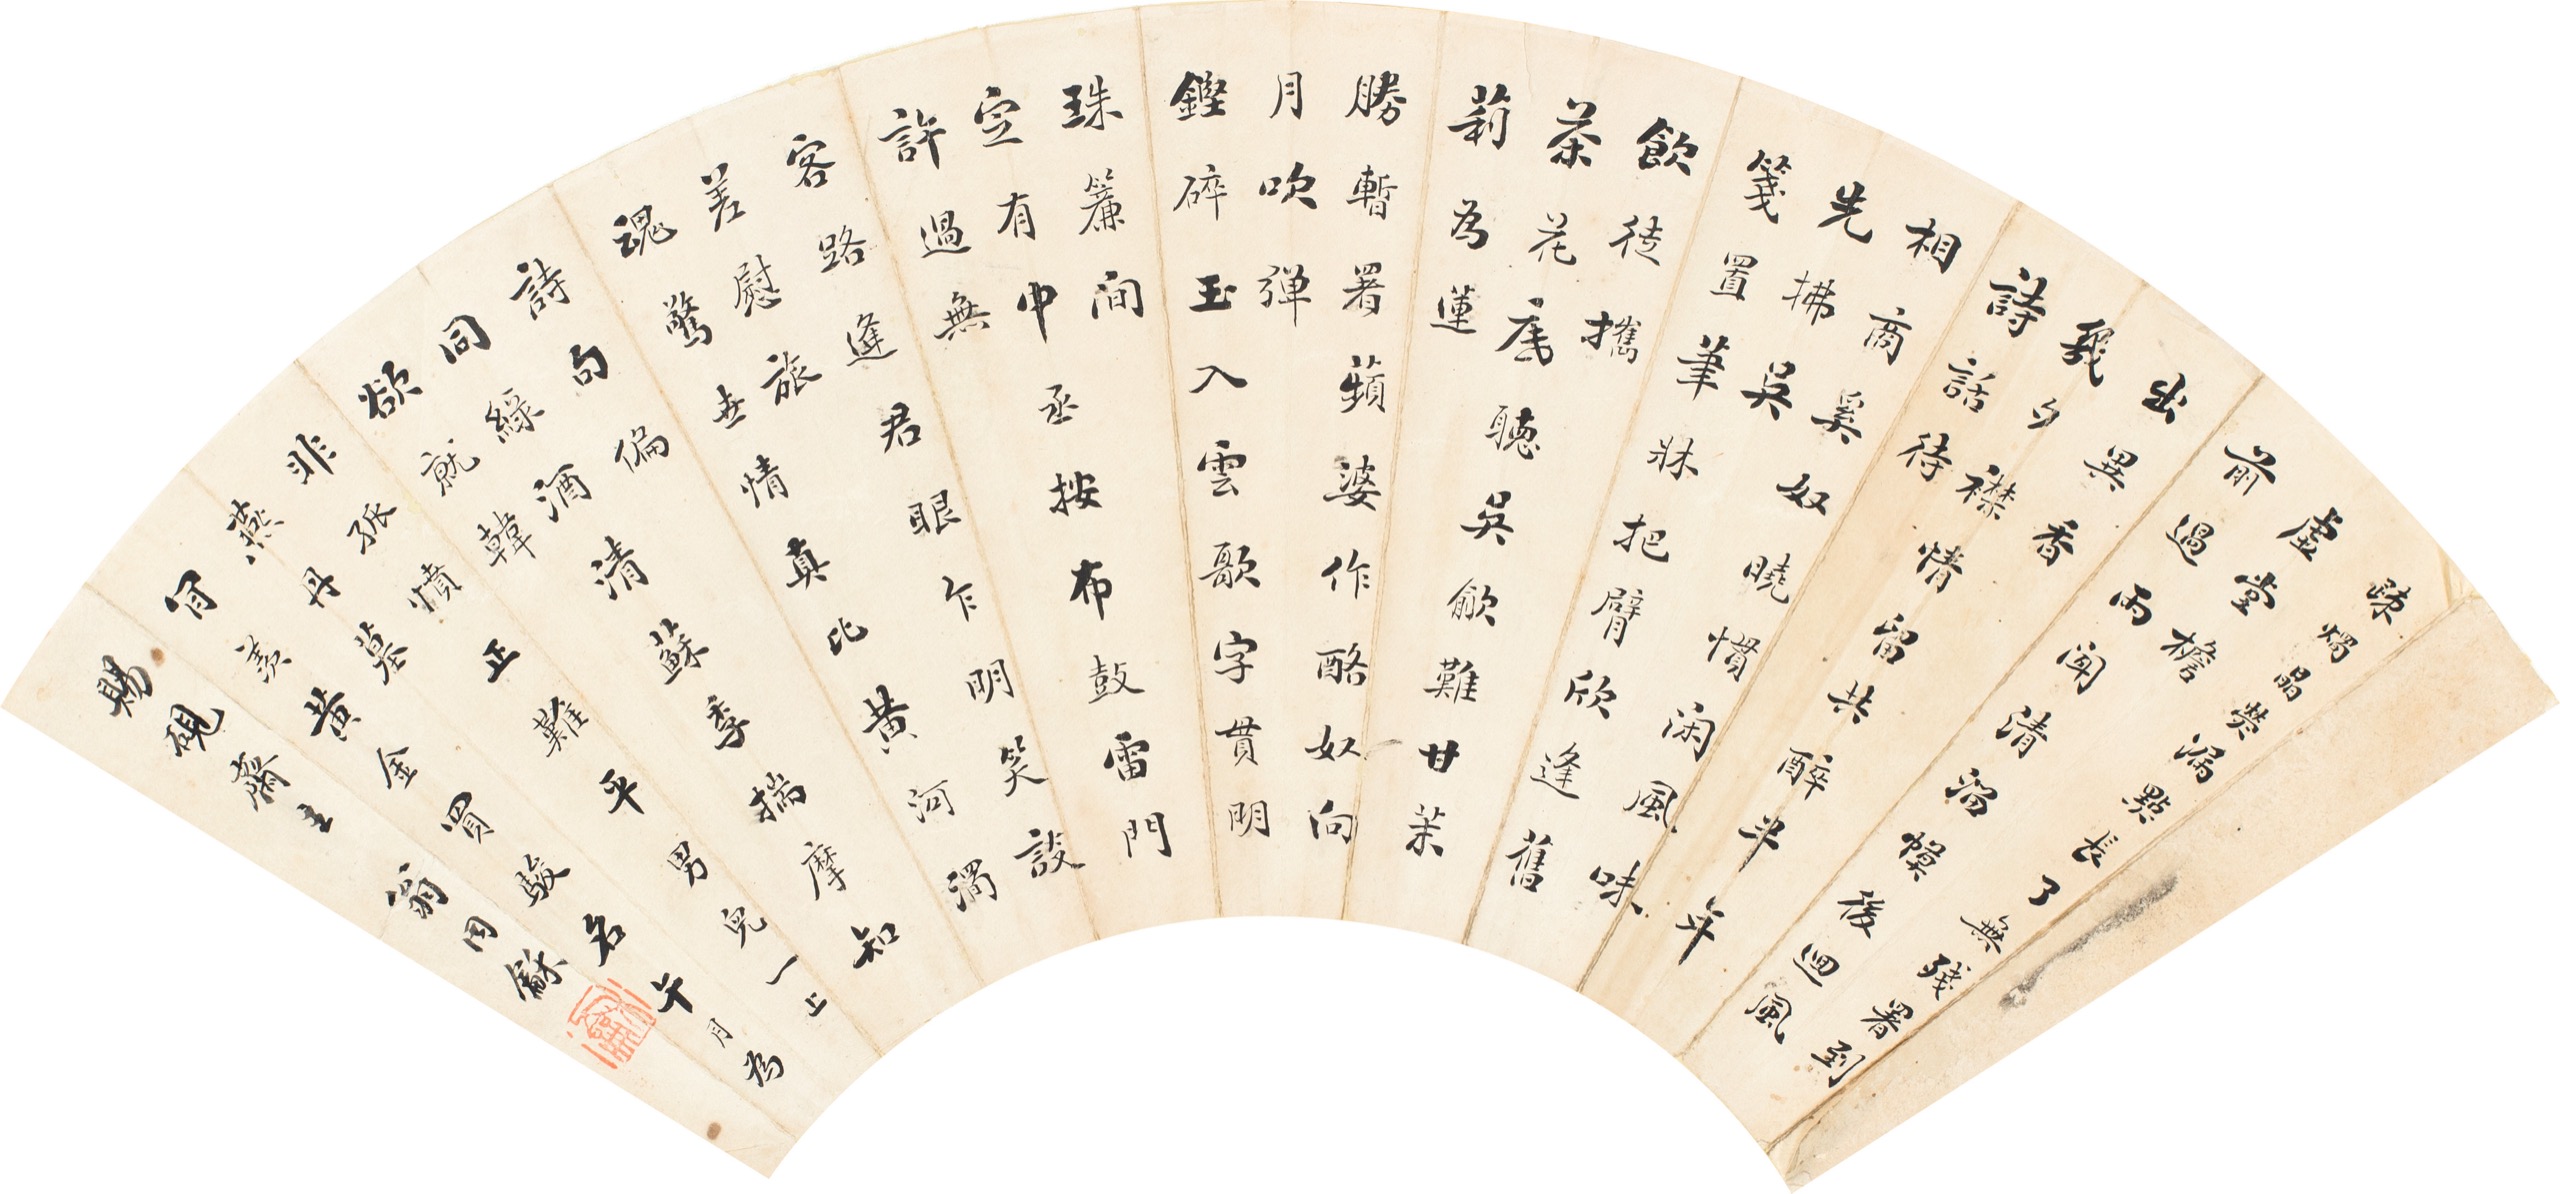 疎燭晶熒漏點長了無殘署到
虛堂檐
前過雨聞清溜幔後迴風
出異香
幾夕襟情留共醉半年
詩話待
相商奚奴曉慣闲風味
先拂吳
箋置筆牀把臂欣逢舊
飲徒攜
茶花底聽吳歈難甘茉
莉為蓮
勝暫署蘋婆作酪奴向
月吹彈
鏗碎玉入雲歌字貫明
珠簾間
定有中丞按布鼓雷門
許過無
客路逢君眼乍明笑談
差慰旅
魂驚世情真比黃河濁
詩句偏
同綠酒清蘇季揣摩知
欲就韓
非孤憤正難平男兒一上
燕丹墓
肎羨黃金買駿名午月為
賜硯齋主翁同龢